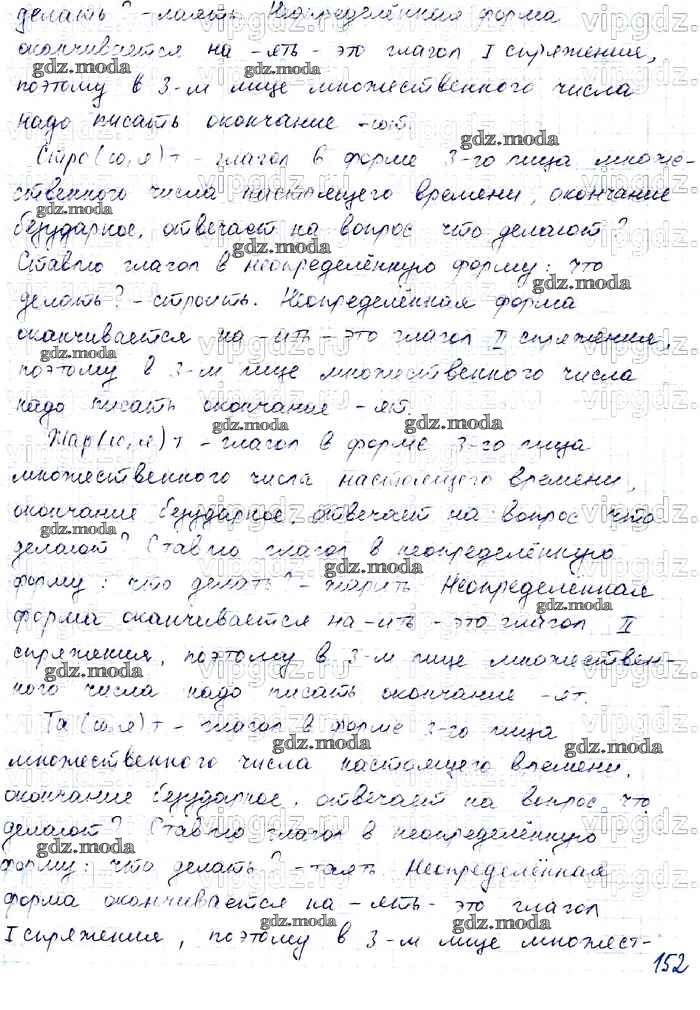 делать? - лаять. Неопределённая форма
оканчивается на -ять - это глагол I спряжения,
поэтому в 3-м лице множественного числа
надо писать окончание -ют.
Стро(ю,я)т - глагол в форме 3-го лица множе-
ственного числа настоящего времени, окончание
безударное, отвечает на вопрос что делают?
Ставлю глагол в неопределённую форму: что
делать? - строить. Неопределённая форма
оканчивается на -ить - это глагол II спряжения,
поэтому в 3-м лице множественного числа
надо писать окончание -ят.
Жар(ю,я)т - глагол в форме 3-го лица
множественного числа настоящего времени,
окончание безударное, отвечает на вопрос что
делают? Ставлю глагол в неопределённую
форму: что делать? - жарить. Неопределённая
форма оканчивается на -ить - это глагол II
спряжения, поэтому в 3-м лице множествен-
ного числа надо писать окончание -ят.
Та(ю,я)т - глагол в форме 3-го лица
множественного числа настоящего времени,
окончание безударное, отвечает на вопрос что
делают? Ставлю глагол в неопределённую
форму: что делать? - таять. Неопределённая
форма оканчивается на -ять - это глагол
I спряжения, поэтому в 3-м лице множест-
152